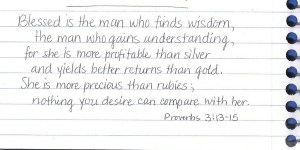 Blessed is the man who finds wisdom,
the man who gains understanding,
for she is more profitable than silver
and yields better returns than gold.
She is more precious than rubies;
nothing you desire can compare with her.
Proverbs 3:13-15